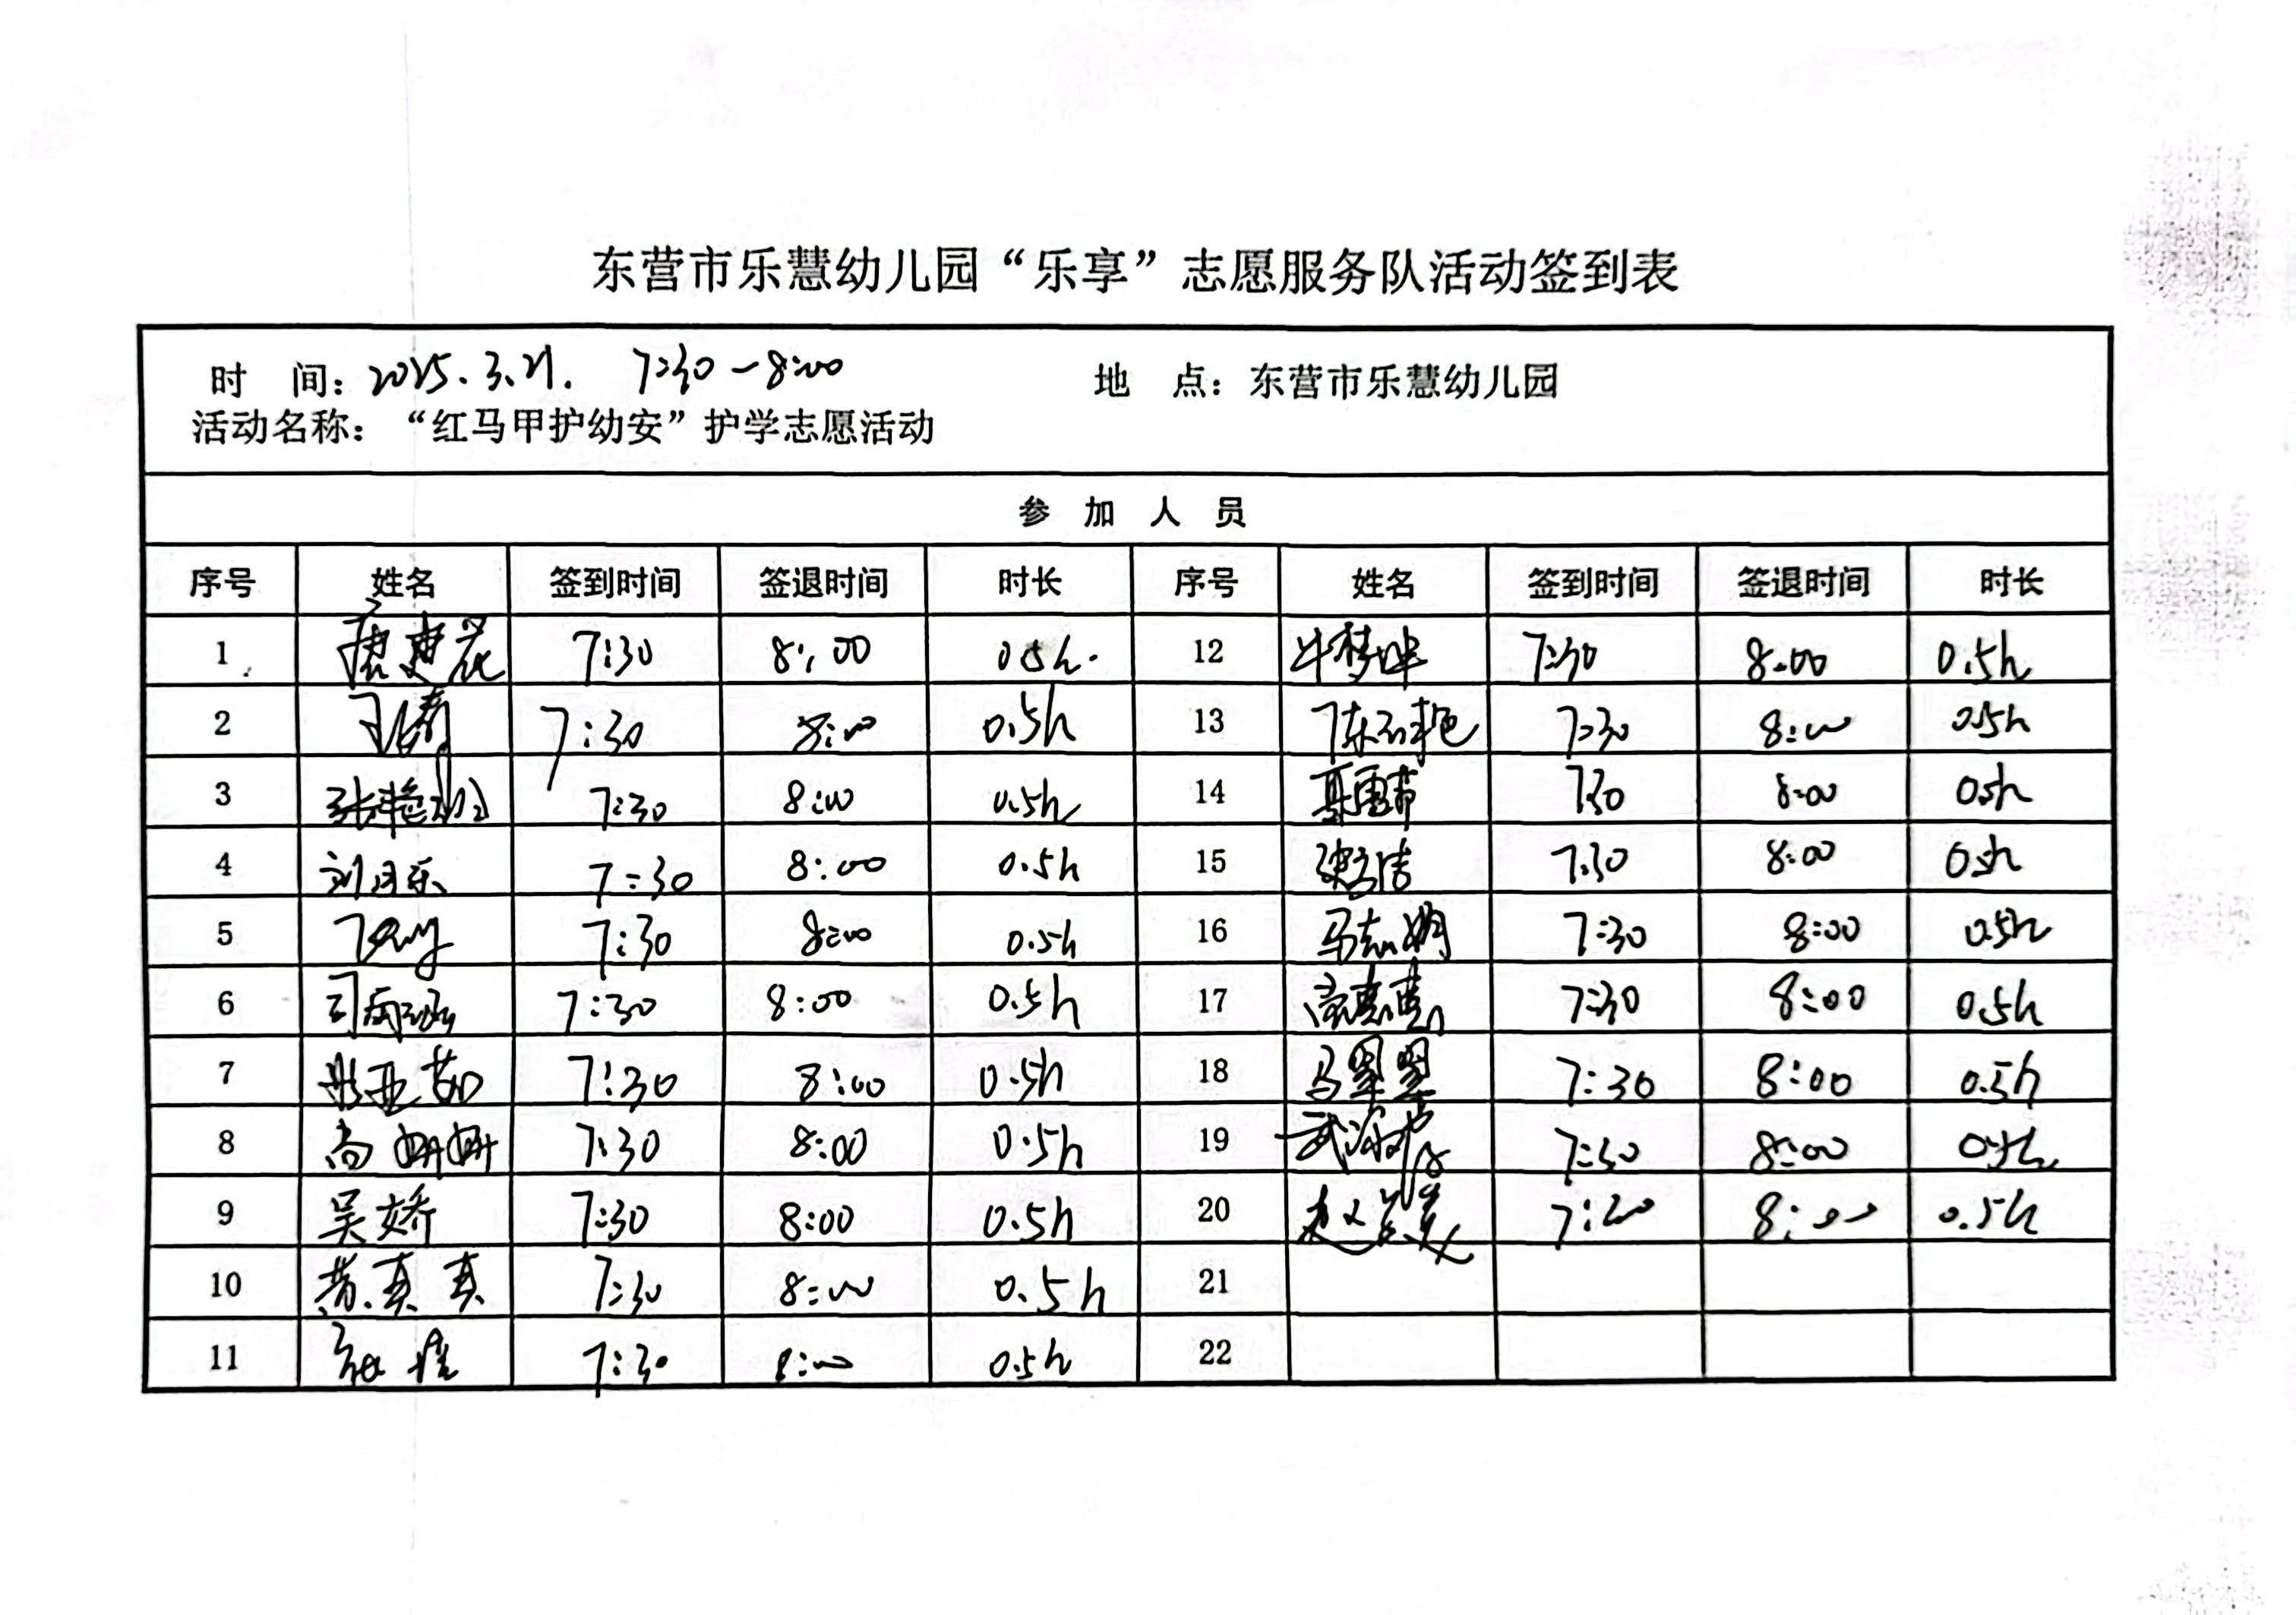 东营市乐慧幼儿园“乐享”志愿服务队活动签到表
时 间：2025.3.21. 7:30-8:00 地 点：东营市乐慧幼儿园
活动名称：“红马甲护幼安”护学志愿活动
参 加 人 员
序号 姓名 签到时间 签退时间 时长 序号 姓名 签到时间 签退时间 时长
1 7:30 8:00 0.5h. 12 牛梦坤 7:30 8:00 0.5h
2 7:30 8:00 0.5h 13 陈艳 7:30 8:00 0.5h
3 张艳 7:30 8:00 0.5h 14 7:30 8:00 0.5h
4 刘月乐 7:30 8:00 0.5h 15 洁 7:30 8:00 0.5h
5 7:30 8:00 0.5h 16 马志娟 7:30 8:00 0.5h
6 司雨涵 7:30 8:00 0.5h 17 高惠惠 7:30 8:00 0.5h
7 亚茹 7:30 8:00 0.5h 18 马翠翠 7:30 8:00 0.5h
8 尚妍妍 7:30 8:00 0.5h 19 武 7:30 8:00 0.5h
9 吴娇 7:30 8:00 0.5h 20 赵美 7:30 8:00 0.5h
10 黄真真 7:30 8:00 0.5h 21
11 7:30 8:00 0.5h 22